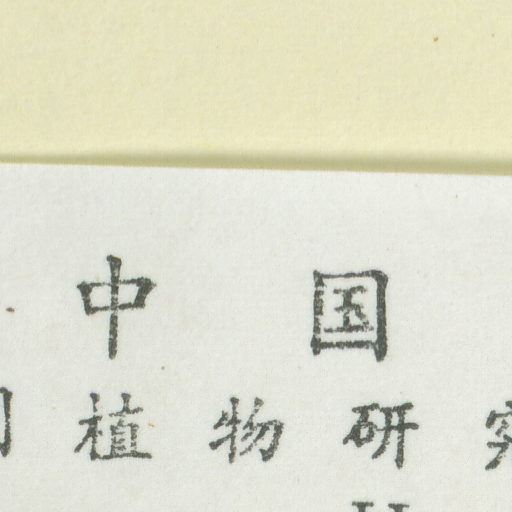 中国
植物研究